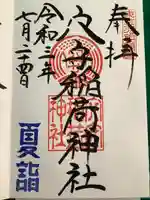 奉拝
穴守稲荷神社
令和三年
七月二十四日
夏詣